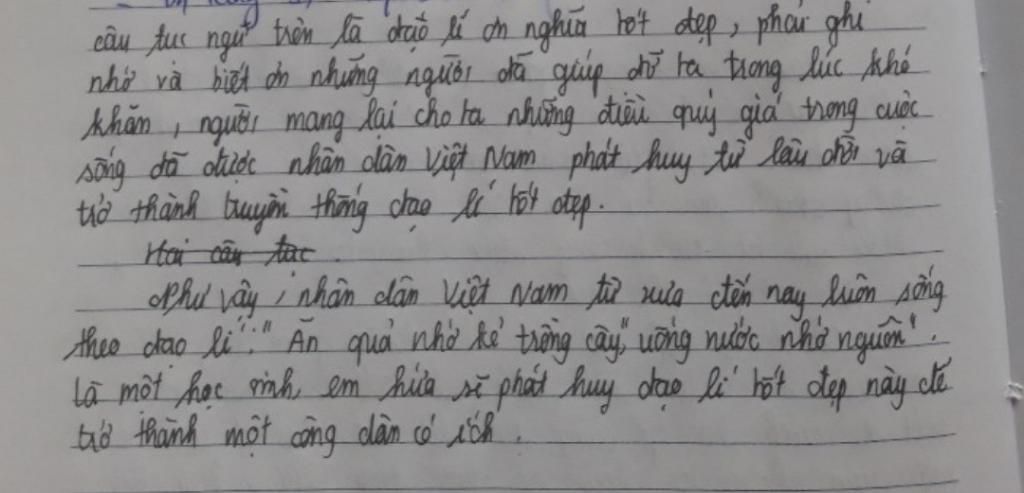 câu tục ngữ trên là đạo lí ơn nghĩa tốt đẹp, phải ghi
nhớ và biết ơn những người đã giúp đỡ ta trong lúc khó
khăn, người mang lại cho ta những điều quý giá trong cuộc
sống đã được nhân dân Việt Nam phát huy từ lâu đời và
trở thành truyền thống đạo lí tốt đẹp.
Hai câu tục
Như vậy, nhân dân Việt Nam từ xưa đến nay luôn sống
theo đạo lí: "Ăn quả nhớ kẻ trồng cây," uống nước nhớ nguồn".
Là một học sinh, em hứa sẽ phát huy đạo lí tốt đẹp này để
trở thành một công dân có ích.